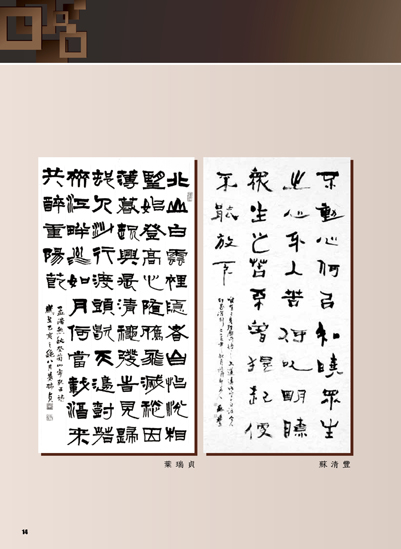 不動心何以知曉眾生
之心不入苦何以明瞭
眾生之苦未曾提起便
不能放下
蘇清豐
北山白雲裡隱者自怡悅相
望始登高心隨雁飛滅愁因
薄暮起興是清秋發時見歸
村人沙行渡頭歇天邊樹若
薺江畔洲如月何當載酒來
共醉重陽節
孟浩然秋登蘭山寄張五詩
葉瑞貞
14